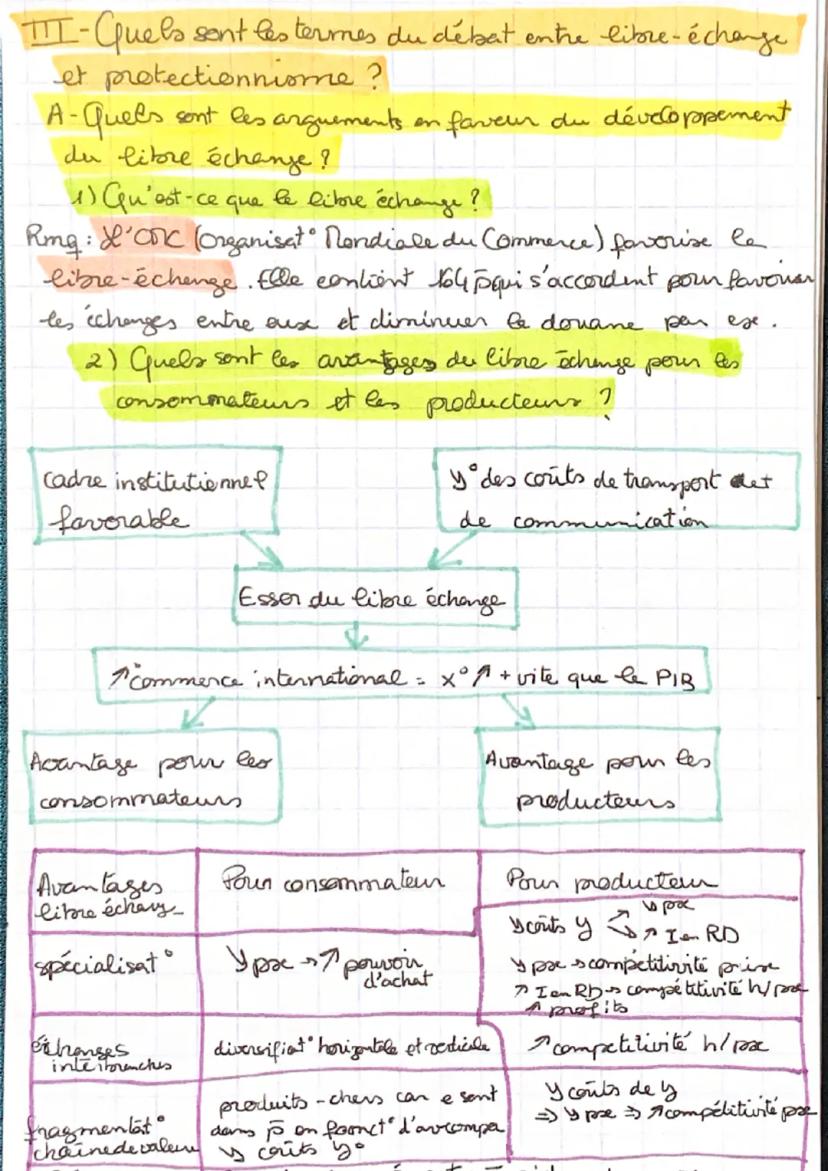 III-Quels sont les termes du débat entre libre-échange
et protectionnisme ?
A-Quels sont les arguments en faveur du développement
du libre échange ?
1) Qu'est-ce que le libre échange ?
Rmq : L'OMC (Organisat° Mondiale du Commerce) favorise le
libre-échange. Elle contient 164 p̄ qui s'accordent pour favoriser
les échanges entre eux et diminuer la douane par ex.
2) Quels sont les avantages du libre échange pour les
consommateurs et les producteurs ?
Cadre institutionnel
favorable
↘° des coûts de transport et
de communication
Essor du libre échange
↗ commerce international = X° ↗ + vite que le PIB
Avantage pour les
consommateurs
Avantage pour les
producteurs
Avantages
libre échang
Pour consommateur
Pour producteur
spécialisat°
↘ px → ↗ pouvoir
d'achat
↘ coûts y
↘ px
↗ I en RD
↘ px → compétitivité prix
↗ I en RD → compétitivité h/px
↗ profits
échanges
interbranches
diversificat° horizontale et verticale
↗ compétitivité h/px
fragmentat°
chaîne de valeur
produits - chers car e sont
dans p̄ en fonct° d'av compa
↘ coûts y°
↘ coûts de y
⇒ ↘ px ⇒ ↗ compétitivité px